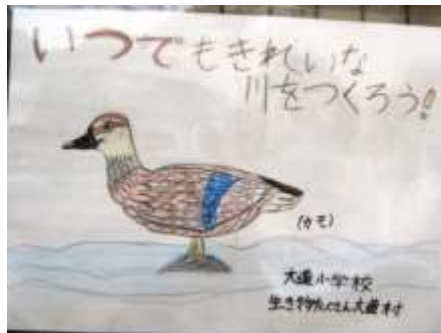 いつでもきれいな
川をつくろう!
(カモ)
大道小学校
生き物たくさん大道村